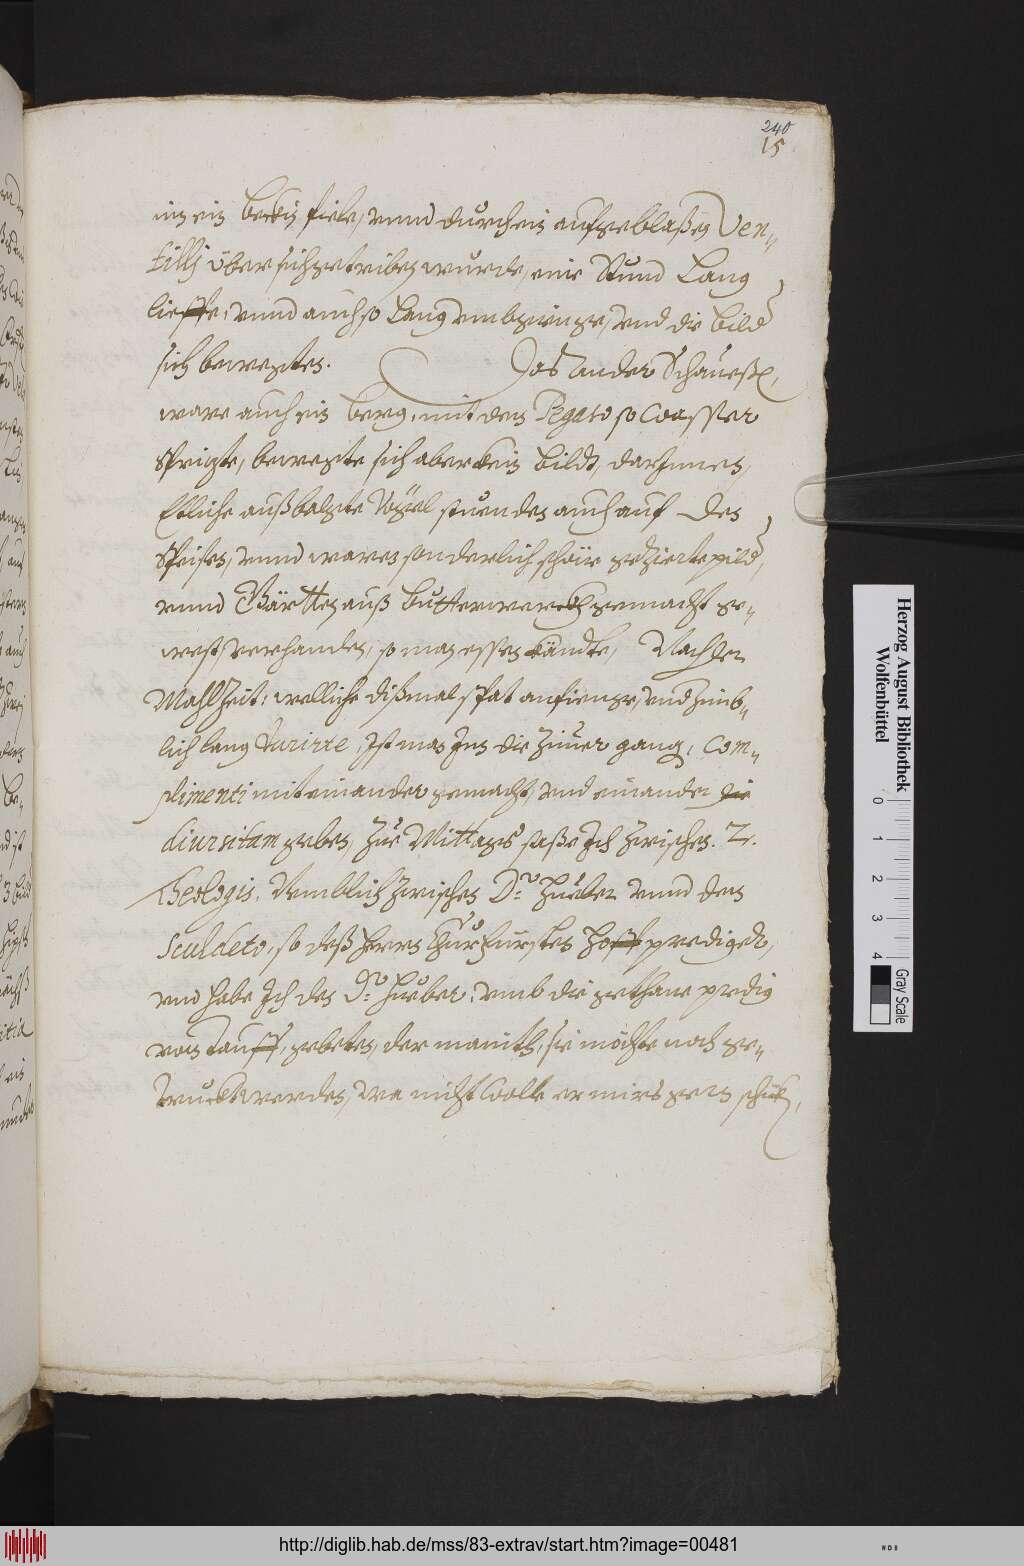 240
15
inn ein Beckin fiele, unnd durch ein aufgeblaßen Ven=
tilli über sich getriben wurde, eine Stund Lang
lieffe, unnd auch so Lang umbgienge, und die Bild
sich bewegten. Das ander Schaueßen,
ware auch ein Berg, mit dem Pegaso so Wasser
sprizte, bewegte sich aber kein Bildt, darInnen,
Etliche außbalgte Vögel stuenden auch auf den
Speisen, unnd waren sonderlich schöne gezierte pild,
unnd Gärtten auß Butterwerckh gemacht ge=
west, verhanden, so man essen kändte, Nach der
MahlZeit: welliche dißmal spat anfienge, und zimb=
lich lang durirte, Ist man Inn die Zimer gang, Com=
plimenti mit einander gemacht, und einander die
diursitam geben, Zue Mittags saße Ich zwischen 2.
Theologis, Nemblich zwischen Dr. Hueber unnd dem
Sculdeto, so deß Herrn ChurFürsten Hoff prediger,
und habe Ich den Dr. Hueber, umb die gethane predig
von Tauff, gebeten, der mainth, sie möchte noch ge=
truckht werden, wa nicht Wolle er mirs gern schickn,
Herzog August Bibliothek
Wolfenbüttel
0 1 2 3 4
Gray Scale
http://diglib.hab.de/mss/83-extrav/start.htm?image=00481